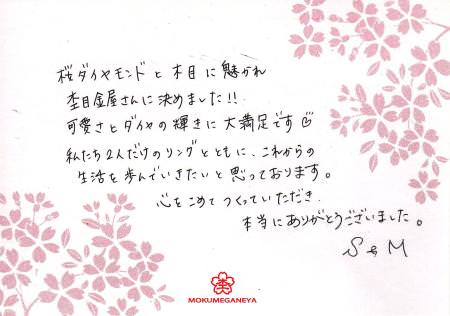 桜ダイヤモンドと木目に魅かれ
杢目金屋さんに決めました!!
可愛さとダイヤの輝きに大満足です♡
私たち2人だけのリングとともに、これからの
生活を歩んでいきたいと思っております。
心をこめてつくっていただき
本当にありがとうございました。
S & M
杢
MOKUMEGANEYA